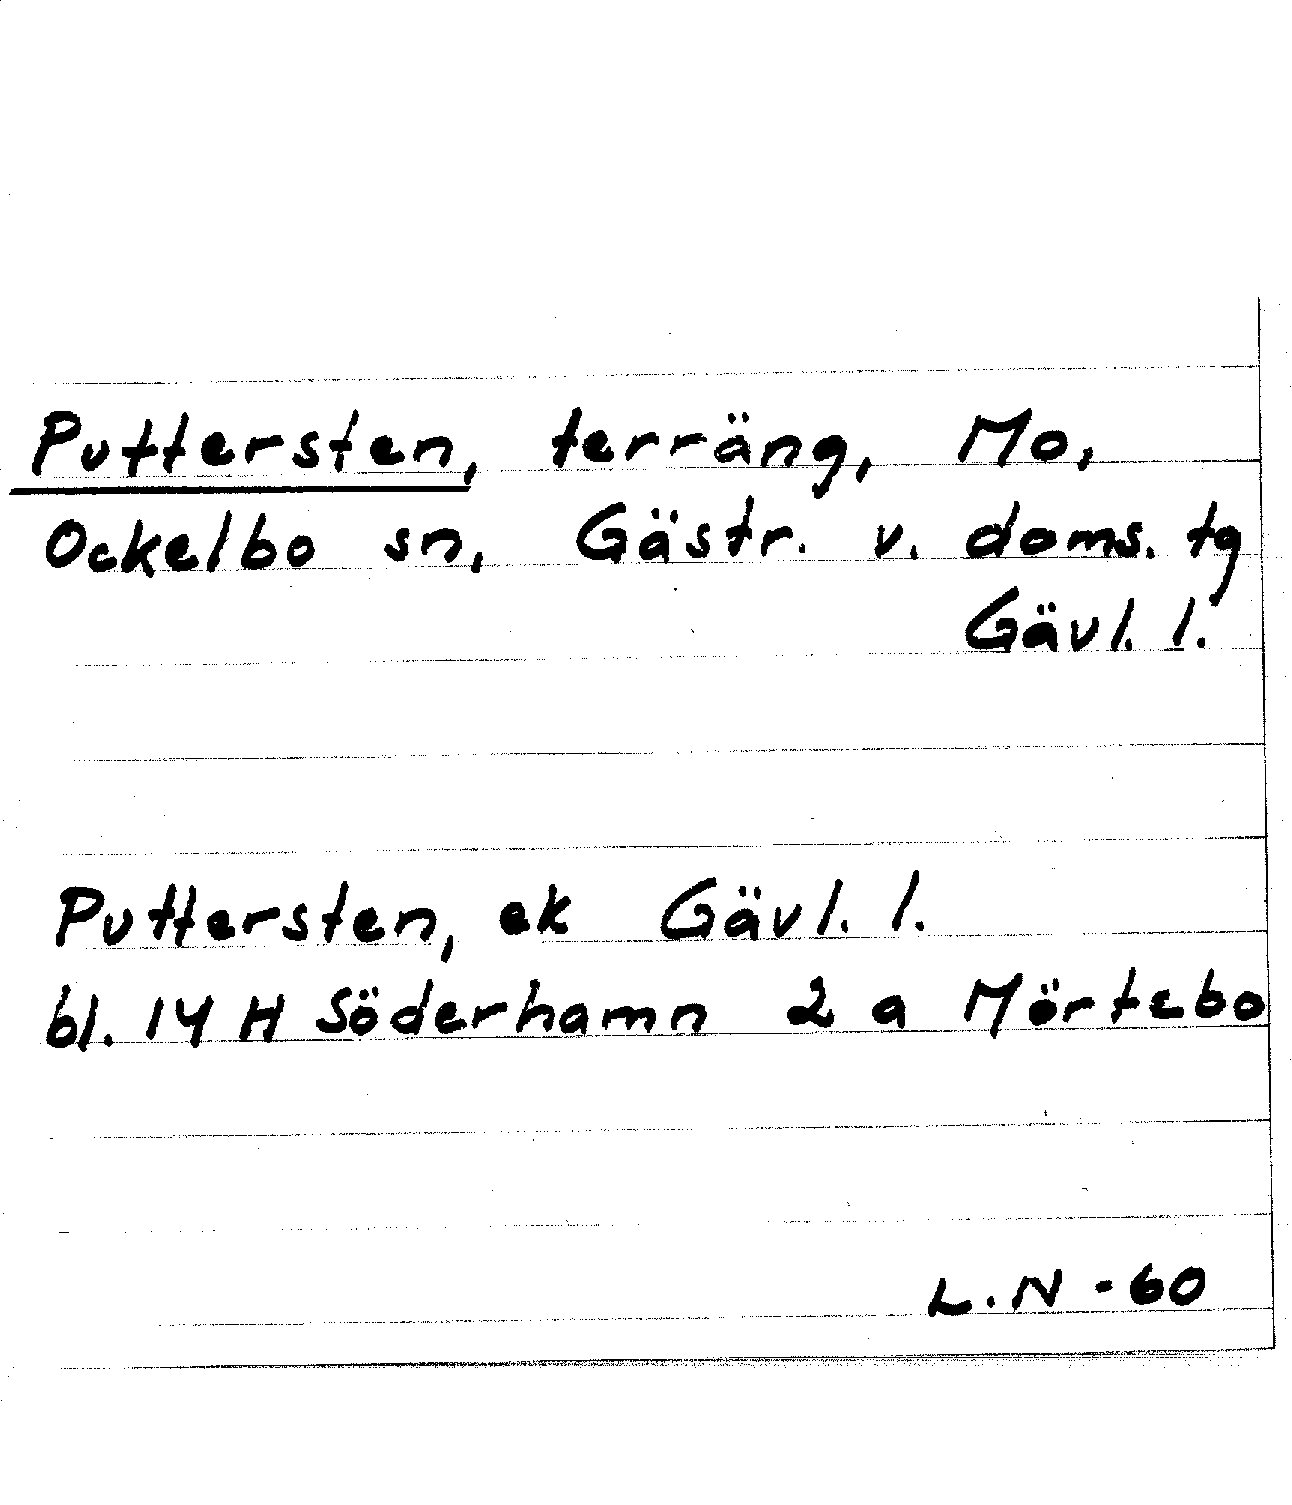 Puttersten, terräng, Mo,
Ockelbo sn, Gästr. v. doms. tg
Gävl. l.
Puttersten, ek Gävl. l.
bl. 14 H Söderhamn 2 a Mörtebo
L.N - 60